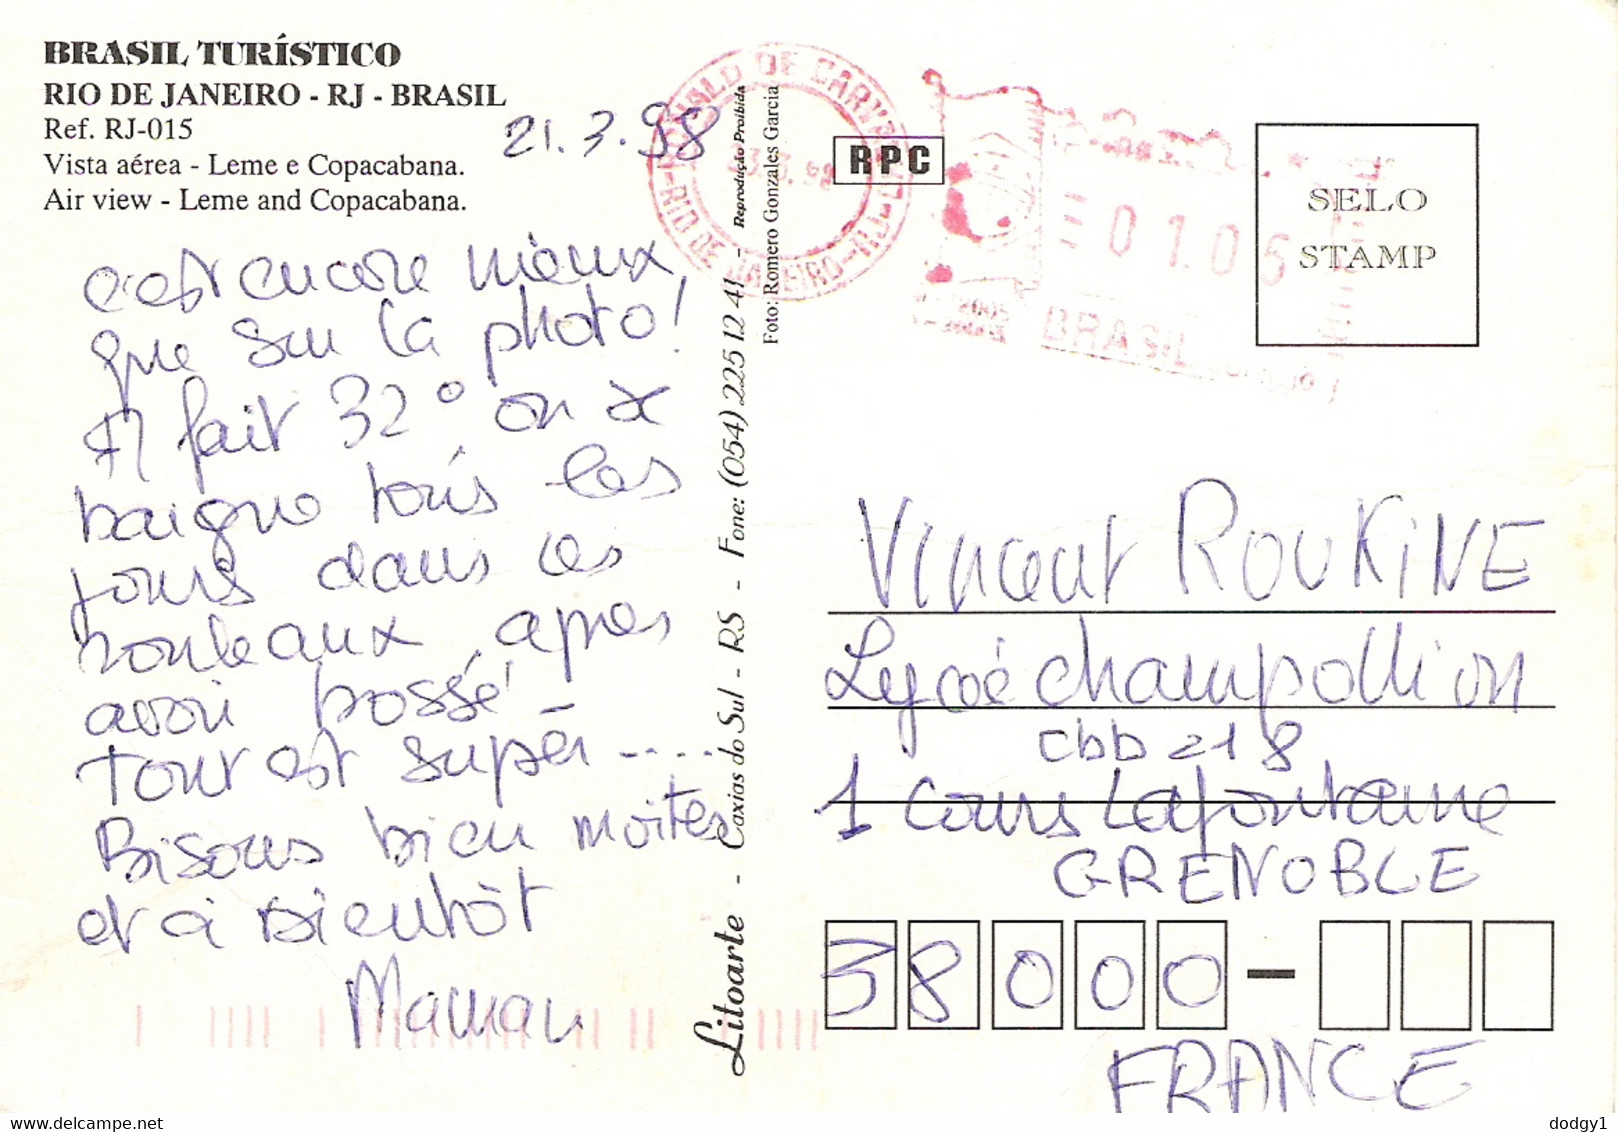 BRASIL TURÍSTICO
RIO DE JANEIRO - RJ - BRASIL
Ref. RJ-015
Vista aérea - Leme e Copacabana.
Air view - Leme and Copacabana.
21.3.98
c'est encore mieux,
que sur la photo!
Il fait 32° on se
baigne tous les
jours dans les
rouleaux, après
avoir bossé
Tout est super ....
Bisous bien moites
et à bientôt
Maman
Litoarte - Caxias do Sul - RS - Fone: (054) 225 12 41 - Reprodução Proibida
Foto: Romero Gonzales Garcia
RIO DE JANEIRO - RJ
RPC
01.05
BRASIL
SELO
STAMP
Vincent ROUKINE
Lycée Champollion
CDD 218
1 Cours Lafontaine
GRENOBLE
38000 -
FRANCE
dodgy1